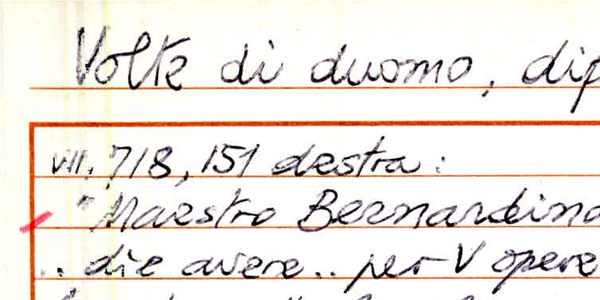 Volte di duomo, dip
VII. 718, 151 destra:
"Maestro Bernardino
.. die avere.. per V opere